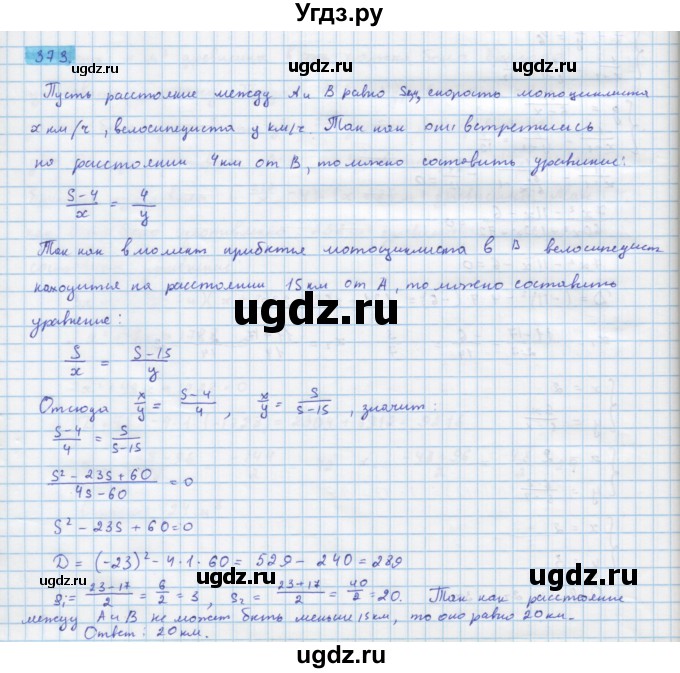 Угдз.ру
373.
ugdz.ru
ugdz.ru
ugdz.ru
Пусть расстояние между А и В равно S км, скорость мотоциклиста
x км/ч, велосипедиста y км/ч. Так как они встретились
на расстоянии 4 км от В, то можно составить уравнение:
(S-4)/x = 4/y
Так как в момент прибытия мотоциклиста в В велосипедист
находится на расстоянии 15 км от А, то можно составить
ugdz.ru
уравнение:
S/x = (S-15)/y
Отсюда x/y = (S-4)/4, x/y = S/(S-15), значит:
(S-4)/4 = S/(S-15)
ugdz.ru
ugdz.ru
(S² - 23S + 60)/(4S - 60) = 0
S² - 23S + 60 = 0
D = (-23)² - 4·1·60 = 529 - 240 = 289
ugdz.ru
ugdz.ru
ugdz.ru
S₁ = (23-17)/2 = 6/2 = 3, S₂ = (23+17)/2 = 40/2 = 20. Так как расстояние
между А и В не может быть меньше 15 км, то оно равно 20 км.
Ответ: 20 км.
ugdz.ru